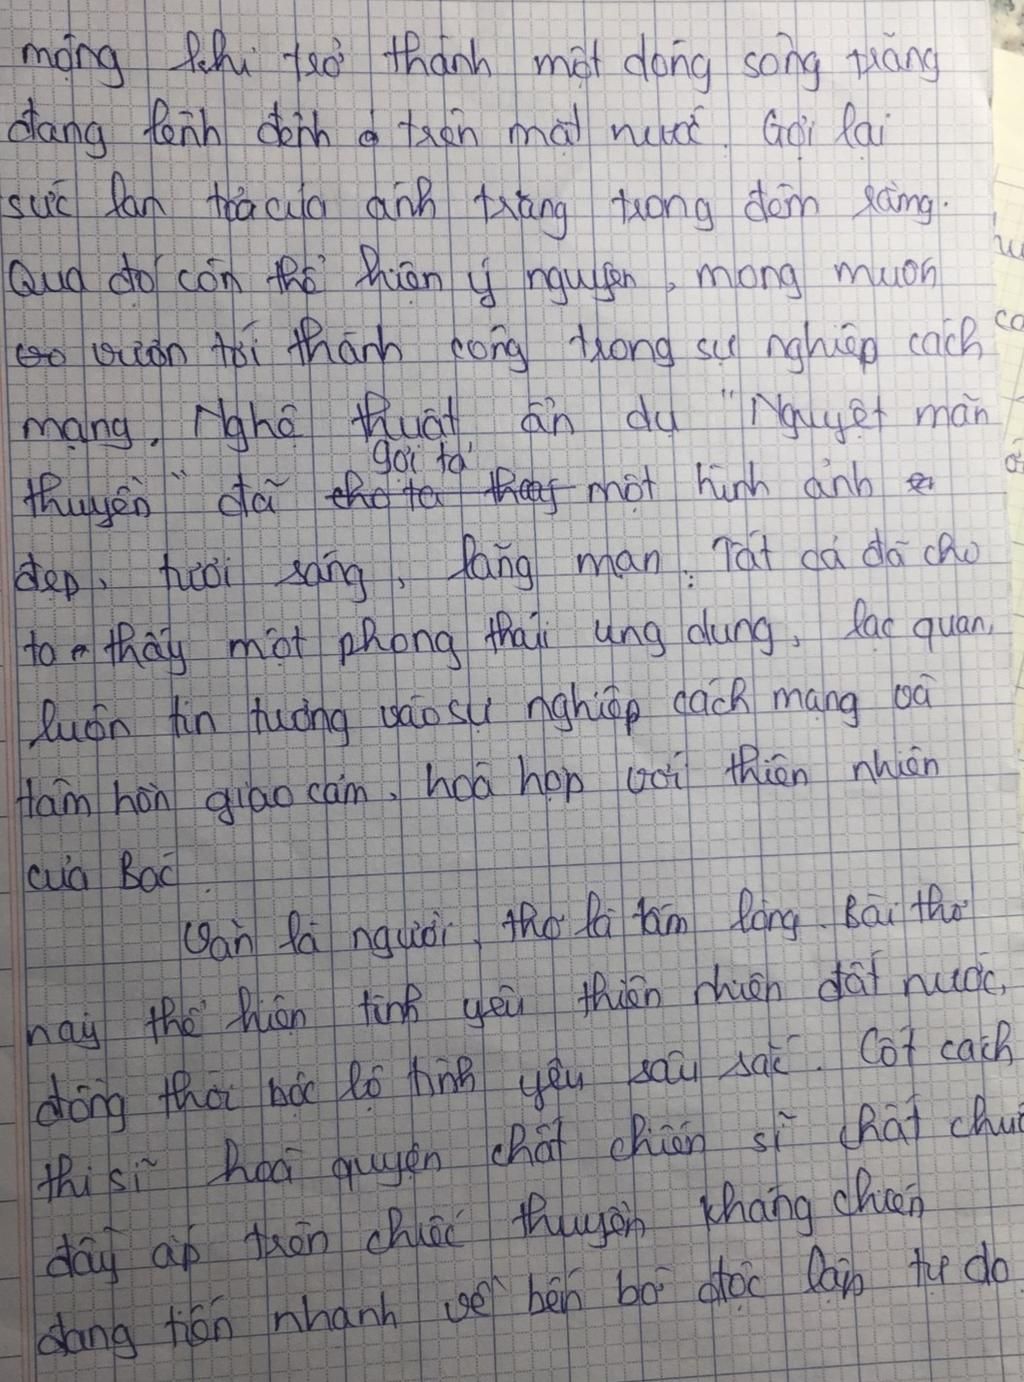 mộng khi trở thành một dòng sông trăng
đang lênh đênh ở trên mặt nước. Gợi lại
sức lan tỏa của ánh trăng trong đêm rằm.
Qua đó còn thể hiện ý nguyện, mong muốn
vươn tới thành công trong sự nghiệp cách
mạng. Nghệ thuật ẩn dụ "Nguyệt mãn
gợi tả
thuyền" đã cho ta thấy một hình ảnh
đẹp, tươi sáng, lãng mạn. Tất cả đã cho
ta thấy một phong thái ung dung, lạc quan,
luôn tin tưởng vào sự nghiệp cách mạng và
tâm hồn giao cảm, hoà hợp với thiên nhiên
của Bác.
Văn là người, thơ là tấm lòng. Bài thơ
này thể hiện tình yêu thiên nhiên đất nước,
đồng thời bộc lộ tình yêu sâu sắc. Cốt cách
thi sĩ hoà quyện chất chiến sĩ chất chứa
đầy ắp trên chiếc thuyền kháng chiến
đang tiến nhanh về bến bờ độc lập tự do